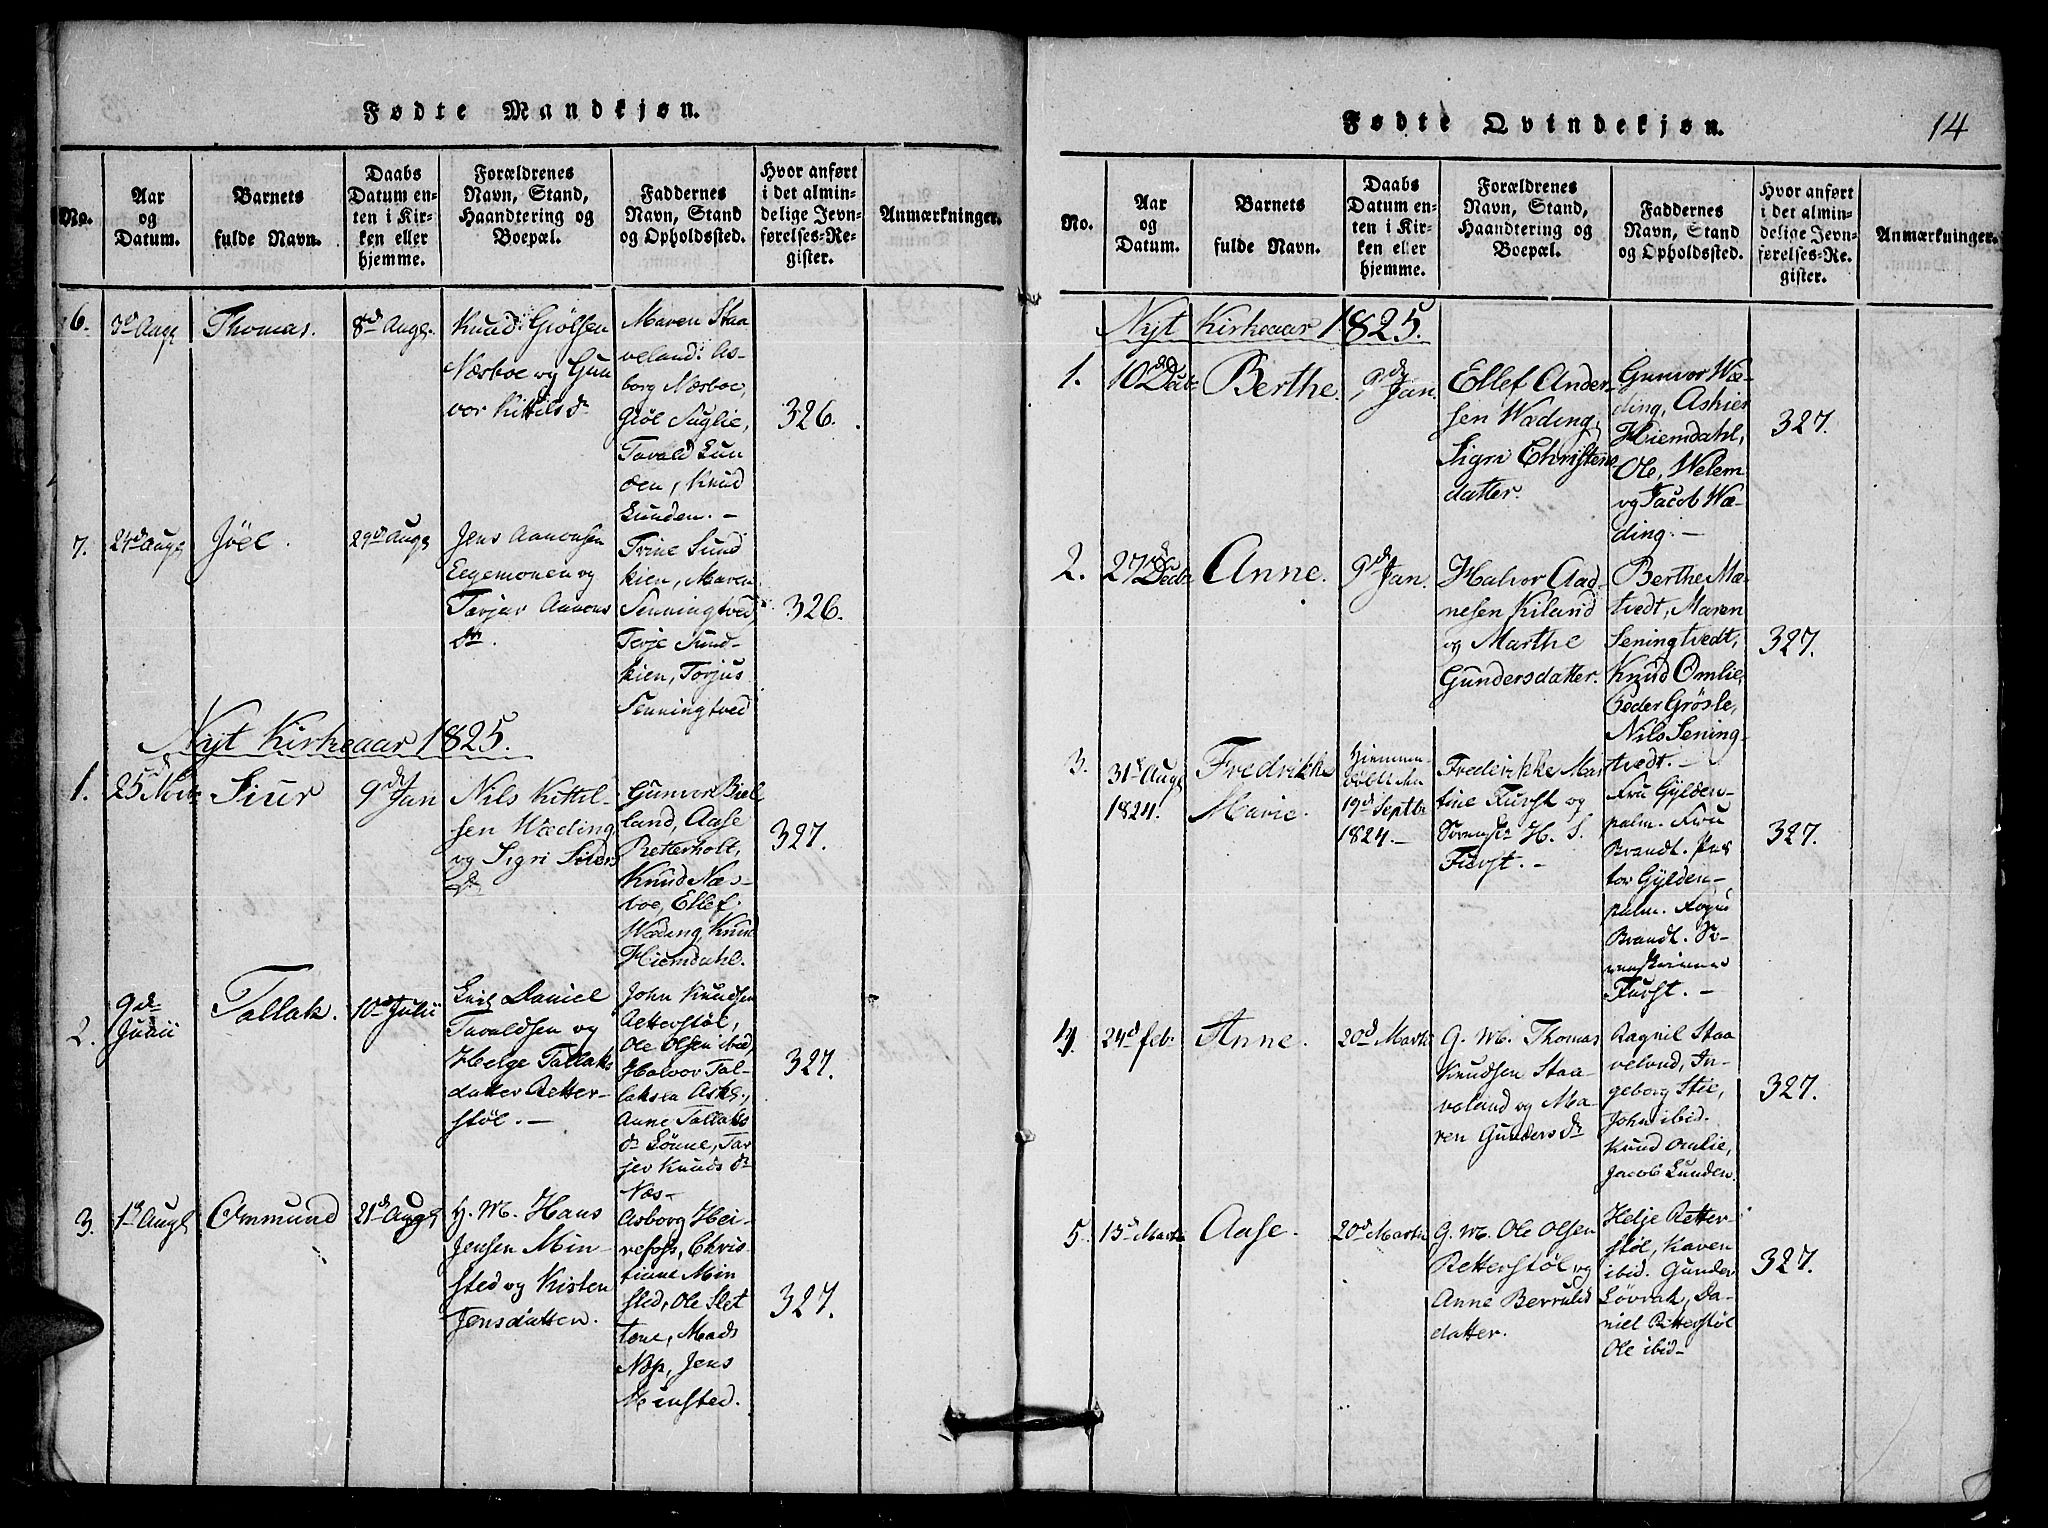 Fødte Mandkjøn.
No.
Aar
og
Datum.
Barnets
fulde Navn.
Daabs
Datum en-
ten i Kir-
ken eller
hjemme.
Forældrenes
Navn, Stand,
Haandtering og
Boepæl.
Faddernes
Navn, Stand
og Opholdssted.
Hvor anført
i det almin-
delige Jevn-
førelses-Re-
gister.
Anmærkninger.
6.
3d Aug
Thomas.
8d Aug
Knud Giølsen
Næsboe og Gun
vor Kittilsdr
Maren Staa
veland. As-
borg Næsboe,
Giøl Fuglie,
Tovald Lun
den, Knud
Lunden. -
326.
7.
24d Aug
Jöel.
29d Aug
Jens Aanonsen
Eegemonen og
Torjer Aanons
dr.
Trine Sund
kien, Maren
Senningtved
Terje Sund-
kien, Torjus
Senningtved
326.
Nyt Kirkeaar 1825.
1.
25d Novbr
Siur
9d Jan
Nils Kittil-
sen Wæding
og Sigri Siurs
dr
Gunvor Biel
land, Aase
Retterholt,
Knud Næs-
boe, Ellef
Wæding, Knud
Hiemdahl.
327.
2.
9d
Junii
Tallak.
10d Julii
Daniel
Tovaldsen og
Helge Tallaks
datter Retter-
støl. -
John Knudsen
Retterstøl,
Ole Olsen ibid,
Halvor Tal-
laksen
Anne Tallaks
dr Lönne, Tor
jer Knudsdr
Næs-
327.
3.
1d Aug
Ommund
21d Aug
H. M. Hans
Jensen Min-
sted og Kirsten
Jensdatter.
Asborg Hei-
refoss, Chris-
tiane Min
sted, Ole Slet
tene, Mads
Næs, Jens
Minsted.
327.
Fødte Qvindekjøn.
14
No.
Aar
og
Datum.
Barnets
fulde Navn.
Daabs
Datum en-
ten i Kir-
ken eller
hjemme.
Forældrenes
Navn, Stand,
Haandtering og
Boepæl.
Faddernes
Navn, Stand
og Opholdssted.
Hvor anført
i det almin-
delige Jevn-
førelses-Re-
gister.
Anmærkninger.
Nyt Kirkeaar 1825.
1.
10d Decbr
Berthe.
9d Jan.
Ellef Ander-
sen Wæding,
Sigri Christens
datter.
Gunvor Wæ-
ding, Askier
Hiemdahl,
Ole, Welem
og Jacob Wæ-
ding. -
327.
2.
27d Decbr
Anne.
9d Jan.
Halvor Aad-
nesen Kiland
og Marthe
Gundersdatter.
Berthe Mæ-
tvedt, Maren
Seningtvedt,
Knud Omlie,
Peder Grösle,
Nils Sening-
tvedt. -
327.
3.
31d Aug
1824.
Fredrikke
Marie.
Hjemme-
døbt den
19d Septbr
1824. -
Frederikke Mar
tine Furst og
Sorenskr H. S.
Furst. -
Fru Gylden-
palm. Fru
Brandt. Pas
tor Gylden-
palm. Foged
Brandt. So-
renskriver
Furst. -
327.
4.
24d feb.
Anne.
20d Marts
G. M. Thomas
Knudsen Staa-
veland og Ma-
ren Gundersdr
Ragnil Staa
veland, In-
geborg Stie,
John ibid.
Knud Omlie,
Jacob Lunden.
327.
5.
13d Marts
Aase.
20d Marts
G. M. Ole Olsen
Retterstøl og
Anne Berrulds
datter.
Helje Retter-
støl, Karen
ibid. Gunder
Løvrak, Da-
niel Retterstøl
Ole ibid-
327.